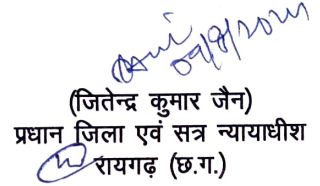 (जितेन्द्र कुमार जैन)
प्रधान जिला एवं सत्र न्यायाधीश
रायगढ़ (छ.ग.)